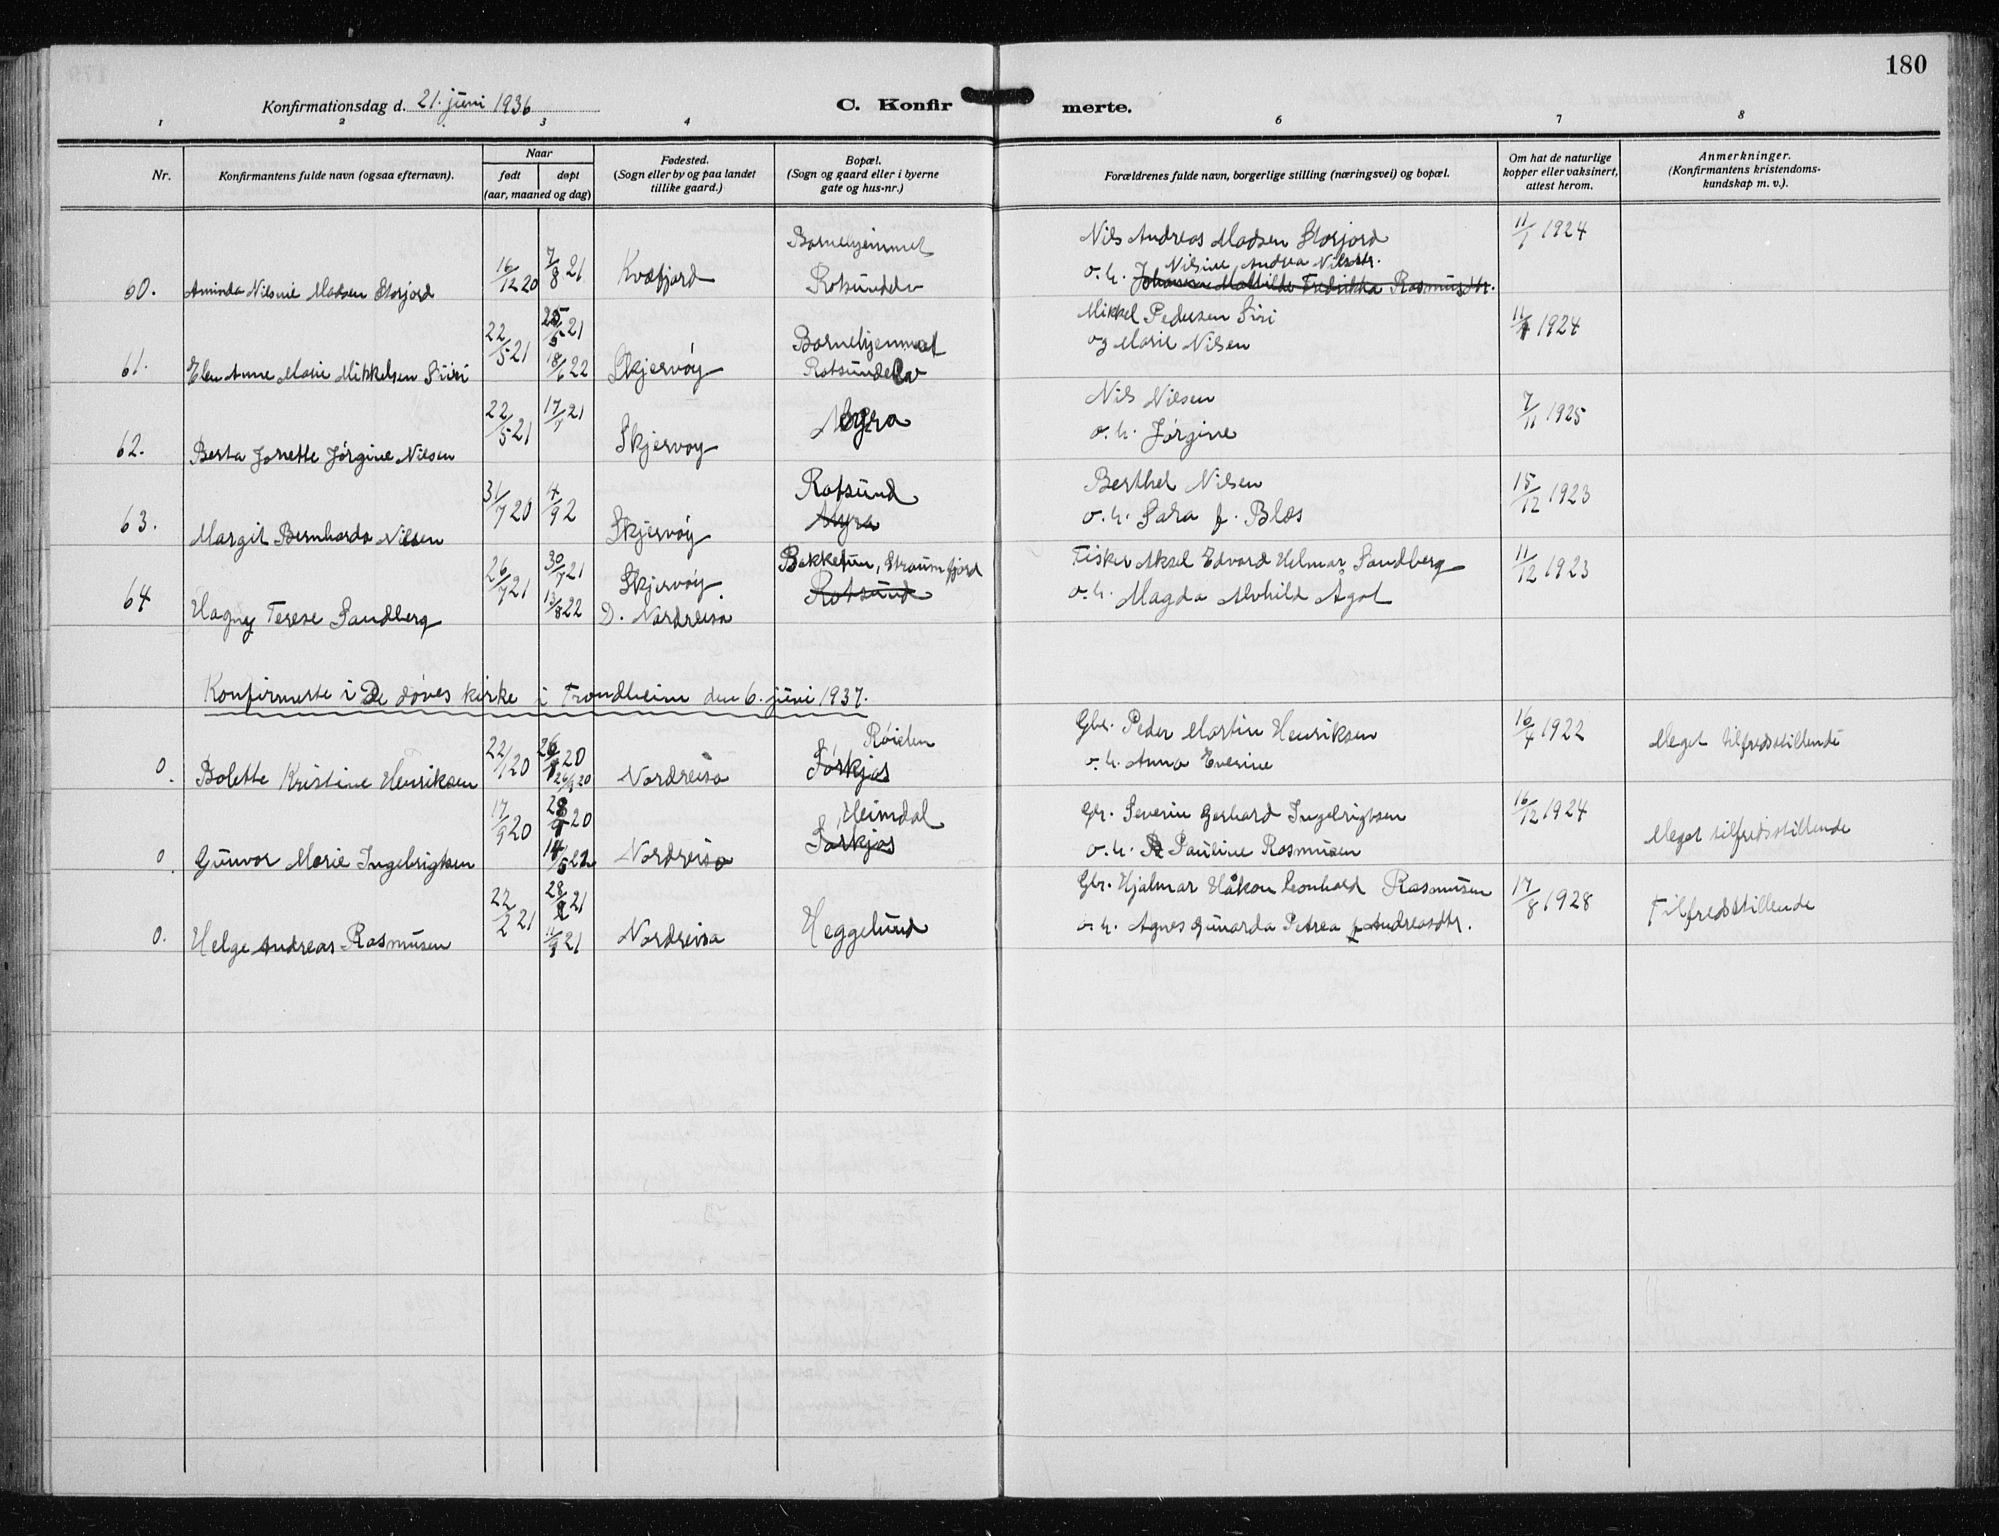 180
Konfirmationsdag d. 21. juni 1936
C. Konfir
merte.
1 2 3 4 6 7 8
Nr.
Konfirmantens fulde navn (ogsaa efternavn).
Naar
født
døpt
(aar, maaned og dag)
Fødested.
(Sogn eller by og paa landet
tillike gaard.)
Bopæl.
(Sogn og gaard eller i byerne
gate og hus-nr.)
Forældrenes fulde navn, borgerlige stilling (næringsvei) og bopæl.
Om hat de naturlige
kopper eller vaksinert,
attest herom.
Anmerkninger.
(Konfirmantens kristendoms-
kundskap m. v.).
60. Aminda Nilsine Madsen Storjord
16/12 20
7/8 21
Kvæfjord
Barnehjemmet
Rotsundelv
Nils Andreas Madsen Storjord
Nilsine Andrea Nilsdtr.
o. h. Johanna Mathilde Fredrikka Rasmusdtr.
11/1 1924
61. Elen Anne Marie Mikkelsen Siiri
22/5 21
25/5 21
18/6 22
Skjervøy
Barnehjemmet
Rotsundelv
Mikkel Pedersen Siri
og Marie Nilsen
11/1 1924
62. Berta Jonette Jørgine Nilsen
22/5 21
17/7 21
Skjervøy
Myra
Nils Nilsen
o. h. Jørgine
7/11 1925
63. Margit Bernharda Nilsen
31/7 20
4/9 2
Skjervøy
Rotsund
Myra
Berthel Nilsen
o. h. Sara f. Blæs
15/12 1923
64 Hagny Terese Sandberg
26/7 21
30/7 21
13/8 22
Skjervøy.
D. Nordreisa
Bakketun, Straumfjord
Rotsund
Fisker Aksel Edvard Helmar Sandberg
o. h. Magda Alvhild Agot
11/12 1923
Konfirmerte i De døves kirke i Trondheim den 6. juni 1937.
0. Bolette Kristine Henriksen
22/1 20
26/9 20
Nordreisa
Røielen
Sørkjos
Gbr. Peder Martin Henriksen
o. h. Anna Everine
16/7 1922
Meget tilfredsstillende
0. Gunvor Marie Ingebrigtsen
17/9 20
28/9 20
14/5 22
Nordreisa
Heimdal
Sørkjos
Gbr. Severin Gerhard Ingebrigtsen
o. h. Pauline Rasmusen
16/12 1924
Meget tilfredsstillende
0. Helge Andreas Rasmusen
22/2 21
28/2 21
11/9 21
Nordreisa
Heggelund
Gbr. Hjalmar Håkon Leonhald Rasmusen
o. h. Agnes Gunarda Petrea f. Andreasdtr.
17/8 1928
Tilfredsstillende